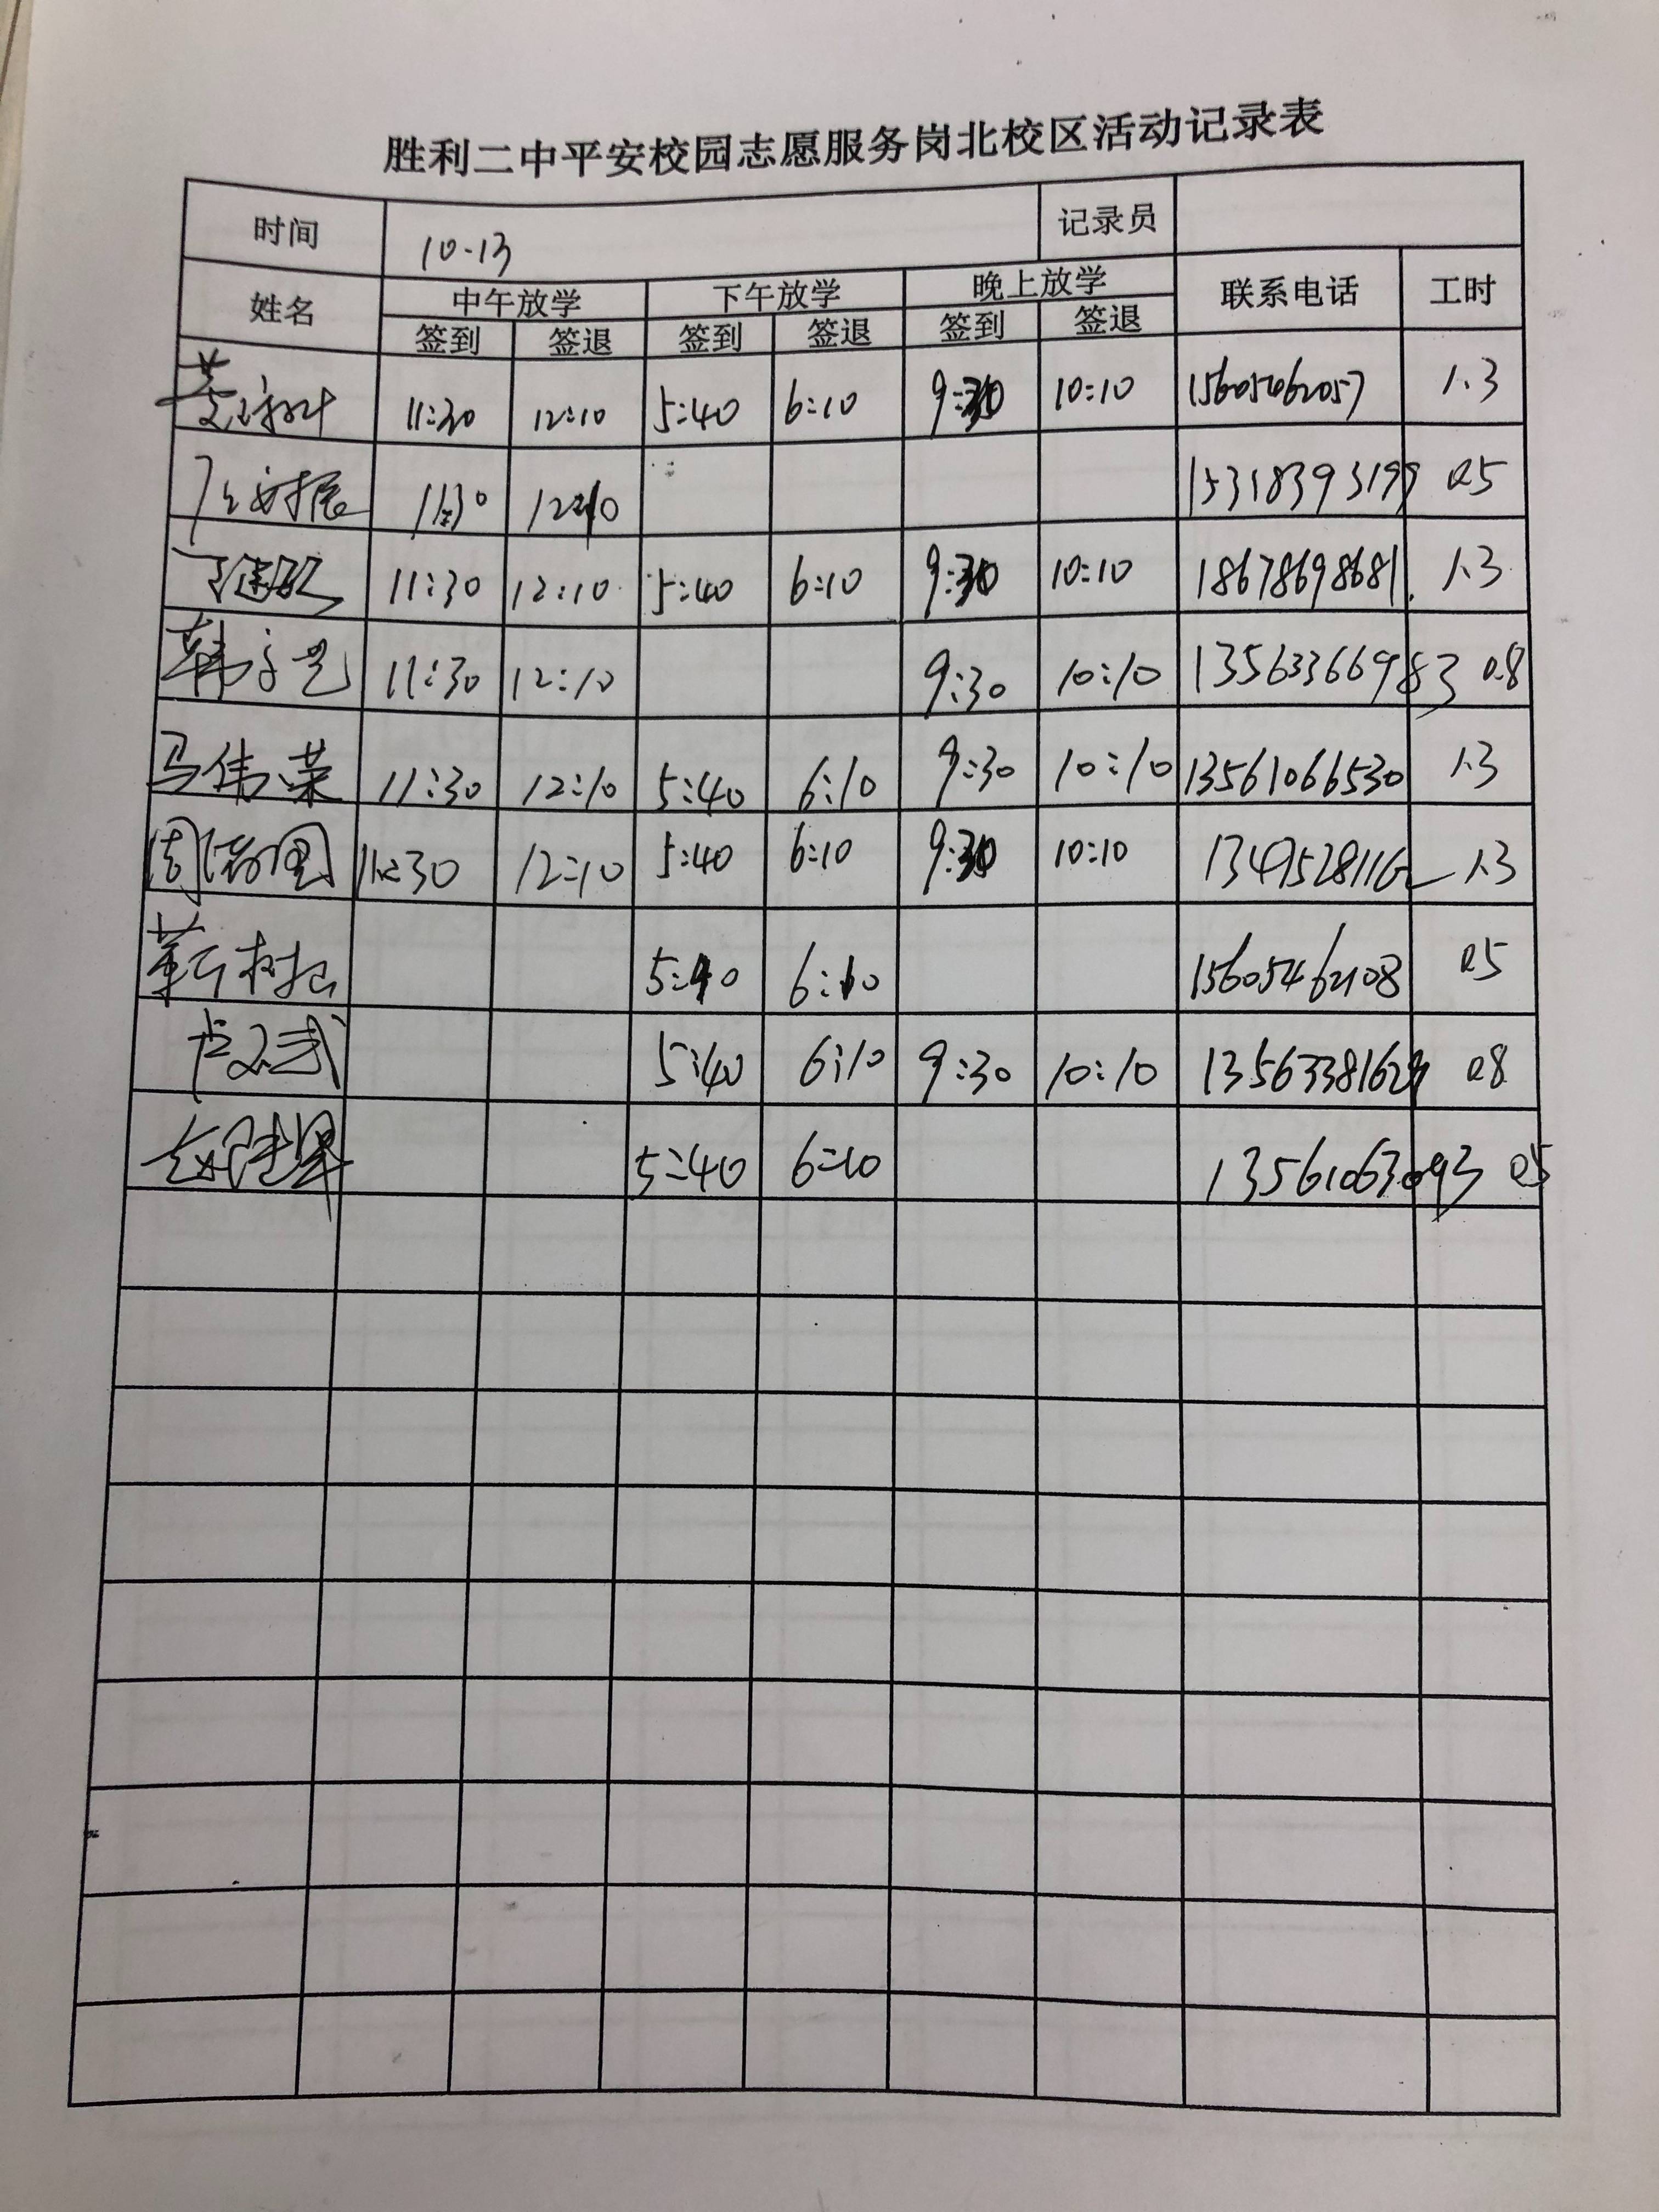 胜利二中平安校园志愿服务岗北校区活动记录表
时间 10.13 记录员
姓名 中午放学 下午放学 晚上放学 联系电话 工时
签到 签退 签到 签退 签到 签退
11:30 12:10 5:40 6:10 9:30 10:10 15605462057 1.3
11:30 12:10 15318393199 0.5
11:30 12:10 5:40 6:10 9:30 10:10 18678698681 1.3
11:30 12:10 9:30 10:10 13563366983 0.8
马伟荣 11:30 12:10 5:40 6:10 9:30 10:10 13561066530 1.3
11:30 12:10 5:40 6:10 9:30 10:10 1.3
5:40 6:10 15605462108 0.5
5:40 6:10 9:30 10:10 0.8
5:40 6:10 13561063093 0.5